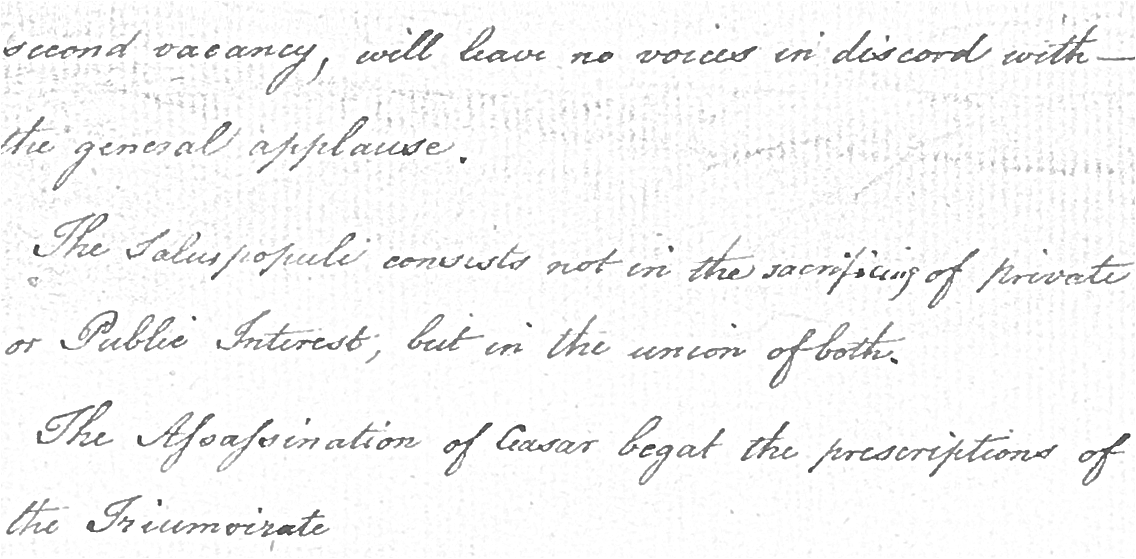 second vacancy, will leave no voices in discord with—
the general applause.
The Saluspopuli consists not in the sacrificing of private
or Public Interest, but in the union of both.
The Aſsaſsination of Ceasar begat the prescriptions of
the Triumvirate